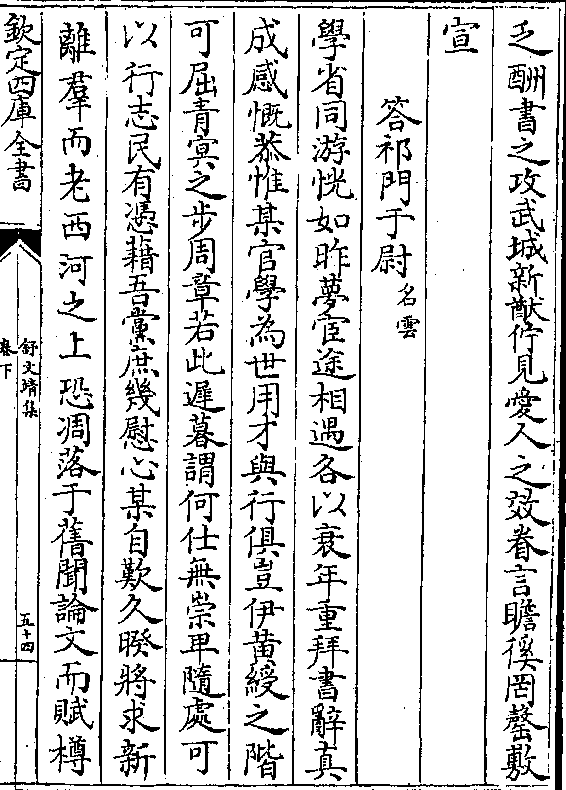 乏酬書之攻武城新猷佇見愛人之效眷言瞻徯罔罄敷
宣
答祁門于尉名雲
學省同游恍如昨夢宦途相遇各以衰年重拜書辭真
成感慨恭惟某官學為世用才與行俱豈伊黄綬之階
可屈青冥之步周章若此遲暮謂何仕無崇卑隨處可
以行志民有憑藉吾黨庶幾慰心某自歎久暌將求新
離羣而老西河之上恐凋落于舊聞論文而賦樽
欽定四庫全書
舒文靖集
卷下
五十四